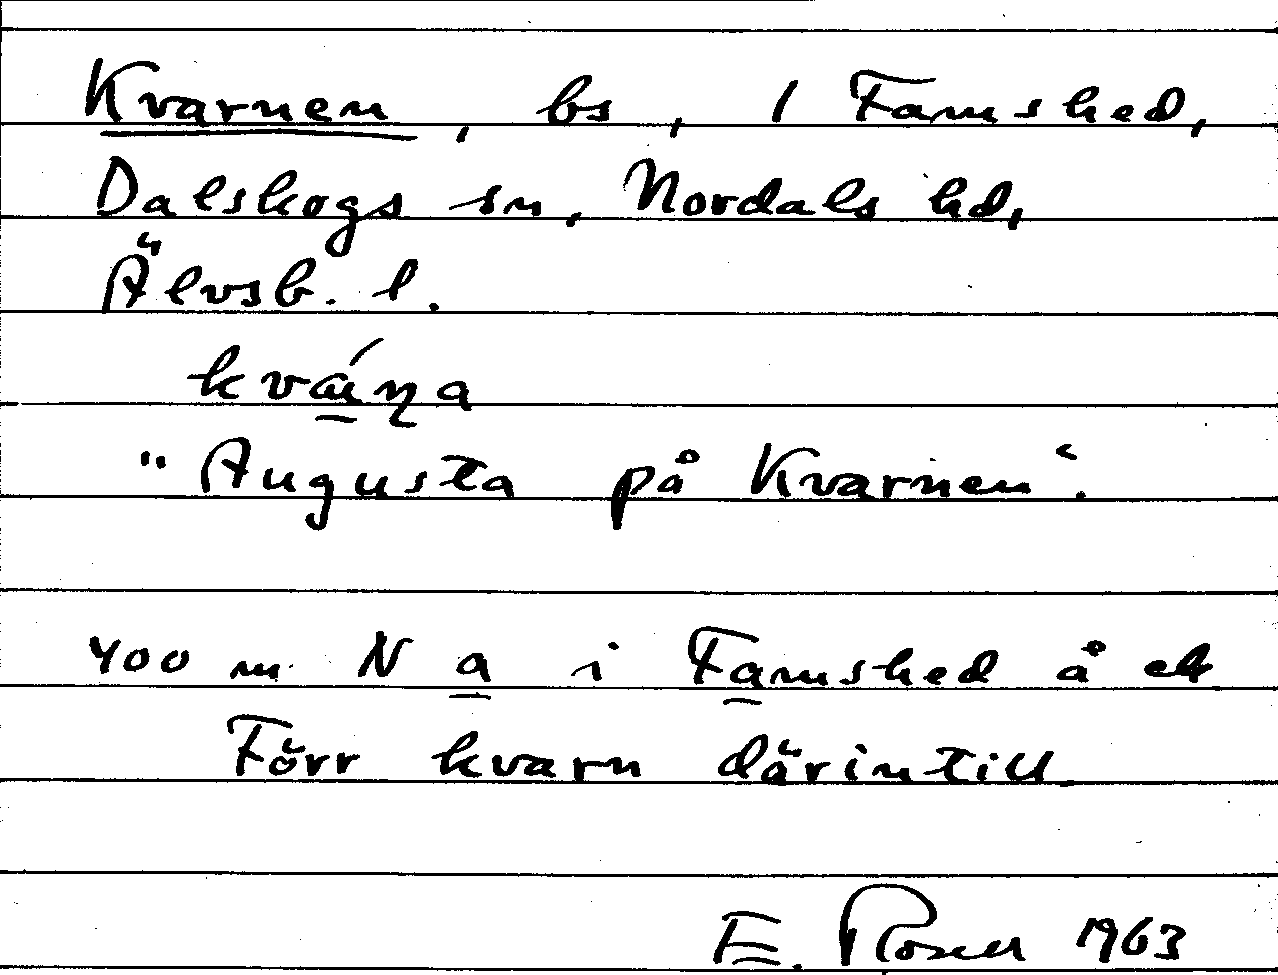 Kvarnen, bs, 1 Famshed,
Dalskogs sn, Nordals hd,
Älvsb. l.
"Augusta på Kvarnen".
400 m N a i Famshed å ek
Förr kvarn därintill
E. Rosell 1963